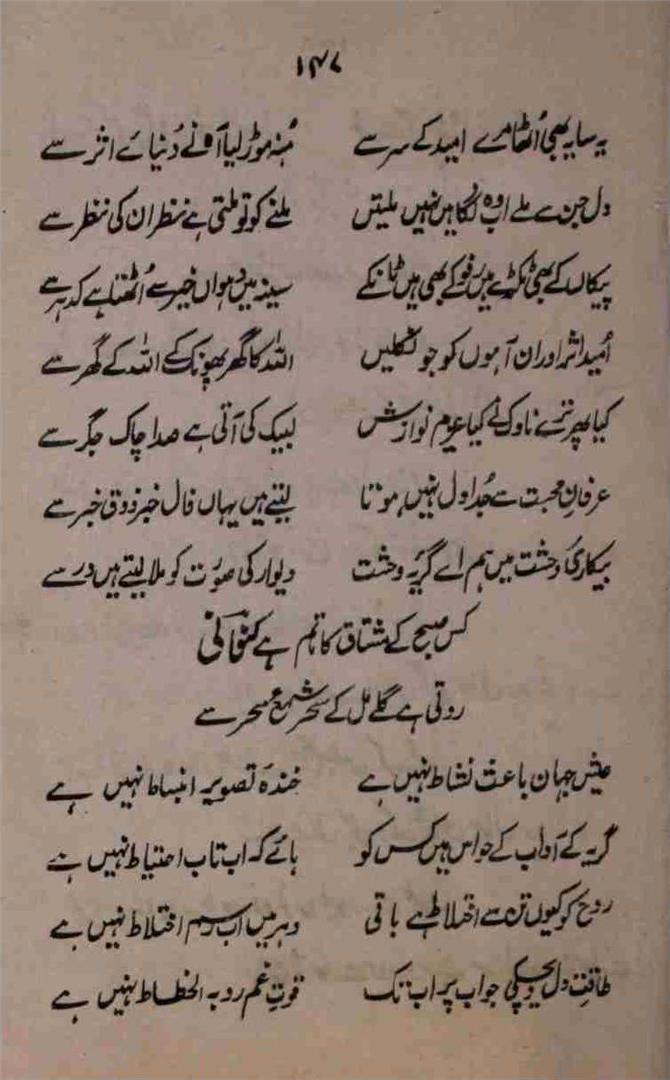 ۱۴۷
یہ سایہ بھی اُٹھا مرے امید کے سر سے مُنہ موڑ لیا آہ نے دُنیائے اثر سے
دل جن سے ملے اب وہ نگاہیں نہیں ملیتں ملنے کو تو ملتی ہے نظر ان کی نظر سے
پیکاں کے بھی ٹکڑے ہیں رفو کے بھی ہیں ٹانکے سینہ میں دہواں خیر سے اُٹھتا ہے کدہر سے
اُمید اثر اور ان آہوں کو جو نکلیں اللہ کا گھر پھونک کے اللہ کے گھر سے
کیا پھر ترے ناوک نے کیا عزم نوازش لبیک کی آتی ہے صدا چاک جگر سے
عرفانِ محبت سے جُدا دل نہیں ہوتا لیتے ہیں یہاں فال خبر ذوق خبر سے
بیکاریٔ وحشت میں ہم اے گریۂ وحشت دیوار کی صورت کو ملا لیتے ہیں در سے
کس صبح کے مشتاق کا ماتم ہے کہ فانی
روتی ہے گلے مل کے سحر شمع سحر سے
عیش جہان باعث نشاط نہیں ہے خندہ تصویر انبساط نہیں ہے
گریہ کے آداب کے حواس ہیں کس کو ہائے کہ اب تاب احتیاط نہیں ہے
روح کو کیوں تن سے اختلاط ہے باقی دہر میں اب رسم اختلاط نہیں ہے
طاقتِ دل دیچکی جواب پر اب تک قوتِ غم رو بہ انحطاط نہیں ہے